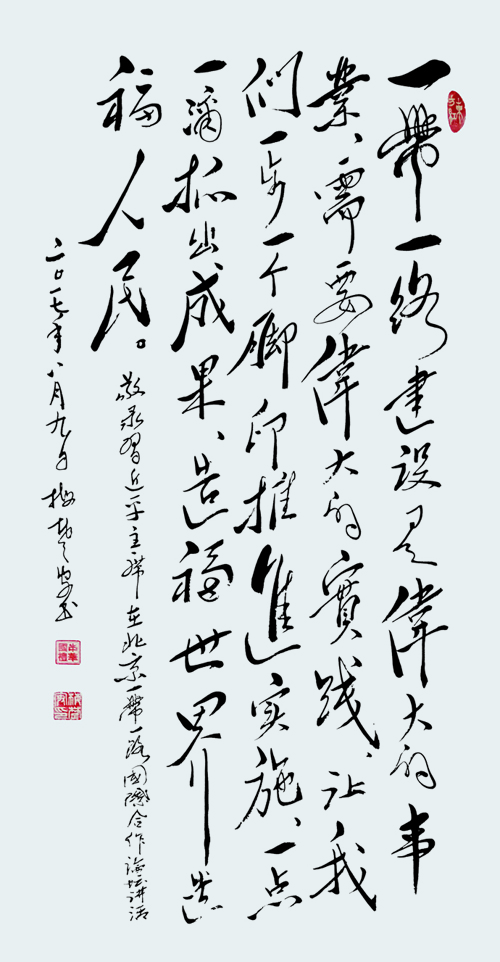 一帶一路建设是偉大的事
業、需要偉大的實践、让我
们一步一个脚印推進实施、一点
一滴抓出成果、造福世界造
福人民。
敬录習近平主席在北京一帶一路國際合作论坛讲话
二〇一七年八月九日梅楚安书